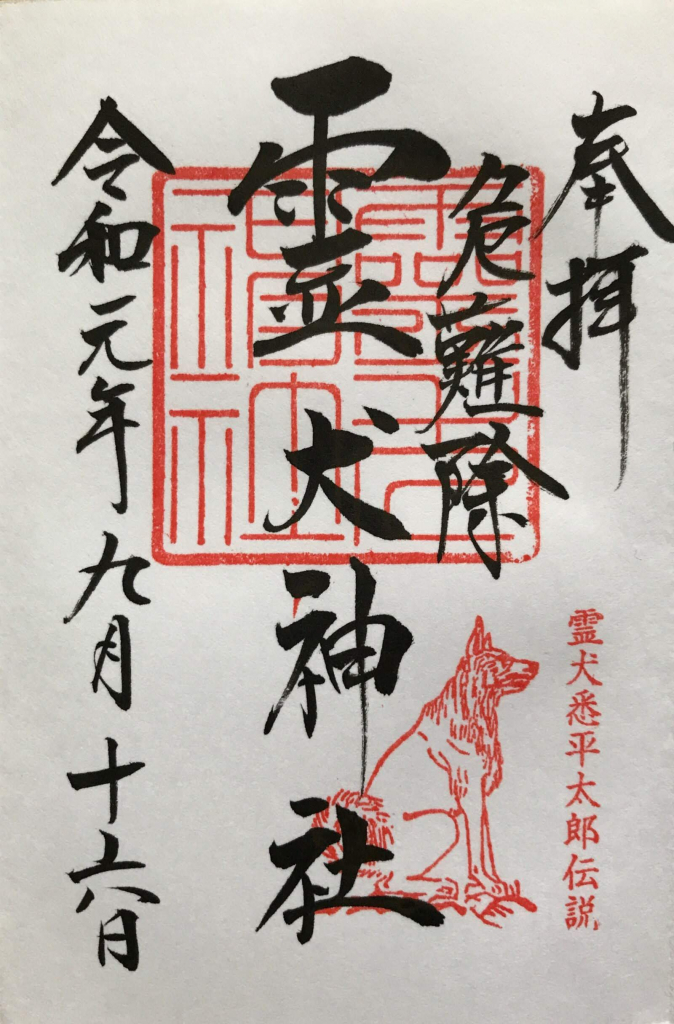 奉拝
危難除
霊犬神社
令和元年九月十六日
霊犬悉平太郎伝説
霊犬神社